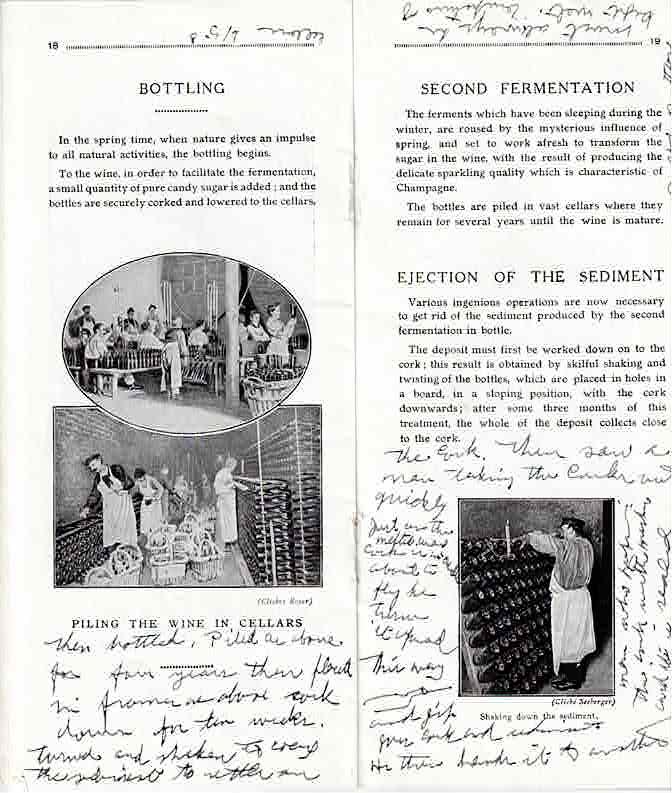 18
cellars
BOTTLING
In the spring time, when nature gives an impulse
to all natural activities, the bottling begins.
To the wine, in order to facilitate the fermentation,
a small quantity of pure candy sugar is added ; and the
bottles are securely corked and lowered to the cellars.
(Clichés Royer)
PILING THE WINE IN CELLARS
then bottled, Piled as above
for four years then placed
in frames as above cork
down for ten weeks.
turned and shaken to
the sediment to settle on
must always be
19
SECOND FERMENTATION
The ferments which have been sleeping during the
winter, are roused by the mysterious influence of
spring, and set to work afresh to transform the
sugar in the wine, with the result of producing the
delicate sparkling quality which is characteristic of
Champagne.
The bottles are piled in vast cellars where they
remain for several years until the wine is mature.
EJECTION OF THE SEDIMENT
Various ingenious operations are now necessary
to get rid of the sediment produced by the second
fermentation in bottle.
The deposit must first be worked down on to the
cork ; this result is obtained by skilful shaking and
twisting of the bottles, which are placed in holes in
a board, in a sloping position, with the cork
downwards ; after some three months of this
treatment, the whole of the deposit collects close
to the cork.
the Cork. Then saw a
man taking the Corks out
quickly
Just as the
about to
fly he
turns
it upward
This way
and
your cork and sediment
He then hands it to another
(Cliché Seeberger)
Shaking down the sediment.
man who